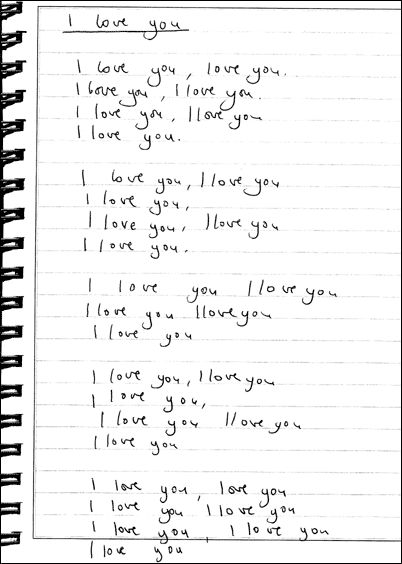 I love you
I love you, love you.
I love you, I love you.
I love you, I love you
I love you.
I love you, I love you
I love you,
I love you, I love you
I love you.
I love you I love you
I love you I love you
I love you
I love you, I love you
I love you,
I love you I love you
I love you
I love you, love you
I love you I love you
I love you, I love you
I love you